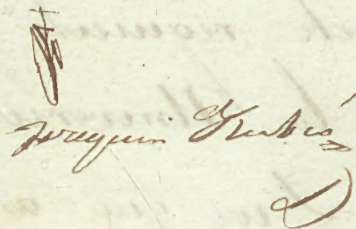 Joaquin Rubio